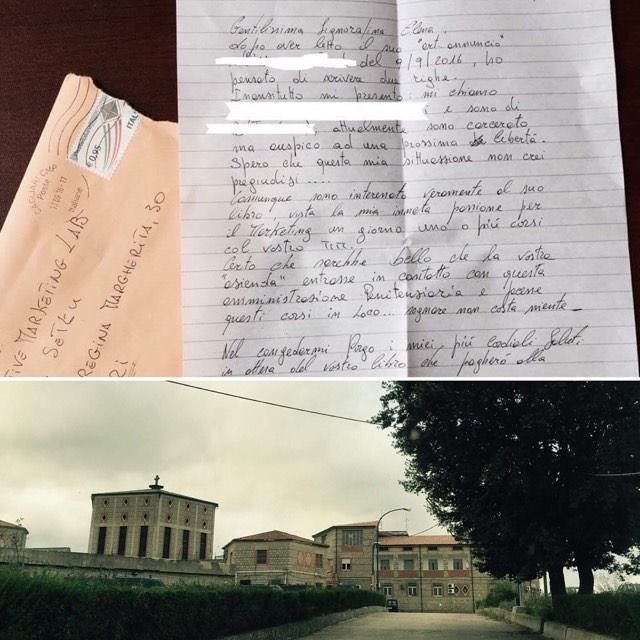 Gentilissima Signoratima Elena,
dopo aver letto il suo "art. annuncio"
del 9/9/2016, ho
pensato di scrivere due righe.
Innanzitutto mi presento mi chiamo
e sono di
attualmente sono carcerato
ma auspico ad una prossima libertà.
Spero che questa mia situassione non crei
pregiudizi....
Comunque sono interessato veramente al suo
libro, vista la mia innata passione per
il Marketing un giorno uno o più corsi
col vostro
Certo che sarebbe bello che la vostra
"asienda" entrasse in contatto con questa
amministrasione Penitensiaria e facesse
questi corsi in loco.... sognare non costa niente_
Nel congedarmi Porgo i miei più cordiali Saluti
in attesa del vostro libro che pagherò alla
€0,95
ITAL
TIVE MARKETING LAB
SETKU
REGINA MARGHERITA, 30
RI